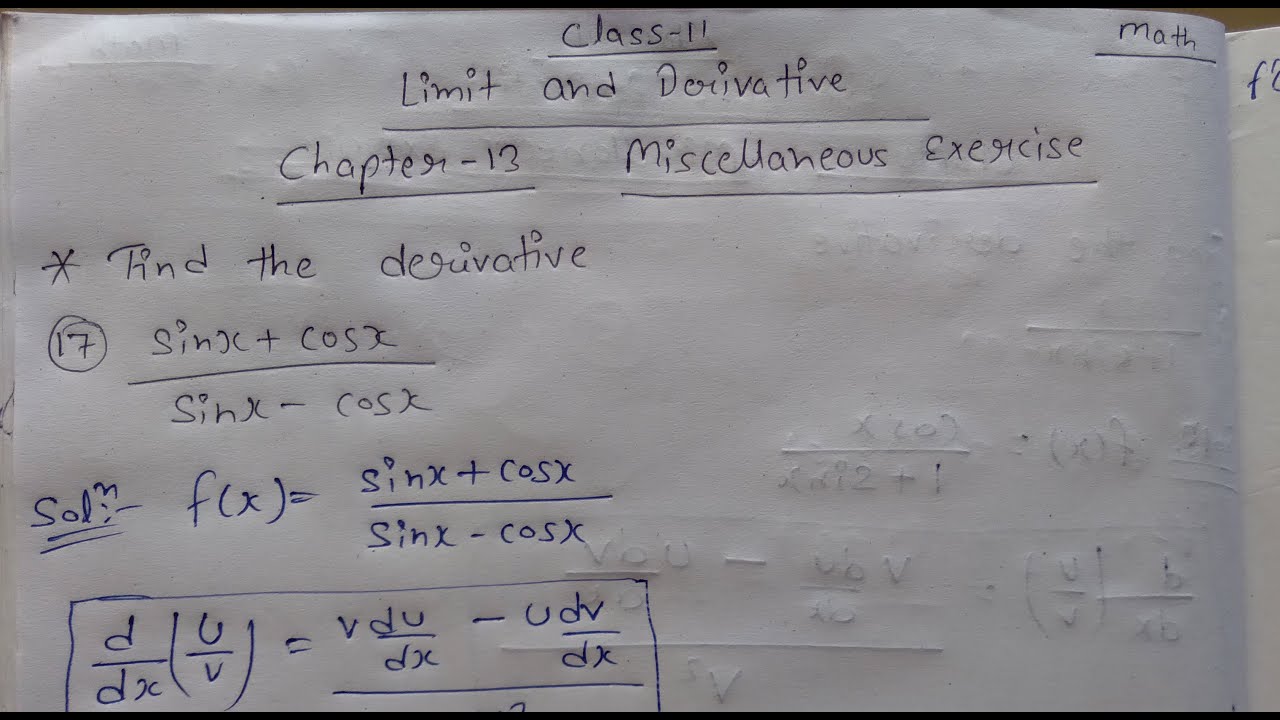 Class-11
Math
Limit and Derivative
Chapter-13 Miscellaneous Exercise
* Find the derivative
17 sinx + cosx
sinx - cosx
Solⁿ:- f(x) = sinx + cosx
sinx - cosx
d/dx (U/V) = V dU/dx - U dV/dx